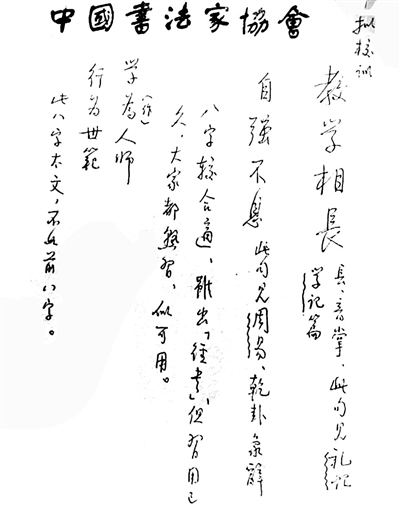 中國書法家協會
拟校训
教学相長 長、音掌,此句见礼记
学记篇
自强不息 此句见周易、乾卦象辭
八字较合適、雖出「经书」,但習用已
久,大家都熟習,似可用。
学為(作)人师
行为世範
此八字太文,不如前八字。